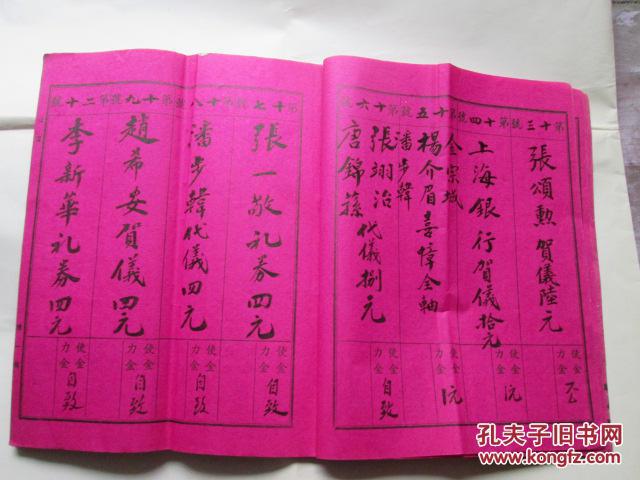 第十三號
張頌勲賀儀陸元
使金
力金
第十四號
上海銀行賀儀拾元
使金
力金
第十五號
金宗城
楊介眉喜幛全軸
潘步韓
使金
力金
第十六號
張翊治
唐錦蓀代儀捌元
使金
力金
自致
第十七號
張一敬礼券四元
使金
力金
自致
第十八號
潘步韓代儀四元
使金
力金
自致
第十九號
趙希安賀儀四元
使金
力金
自致
第二十號
李新華礼券四元
使金
力金
自致
孔夫子旧书网
www.kongfz.com